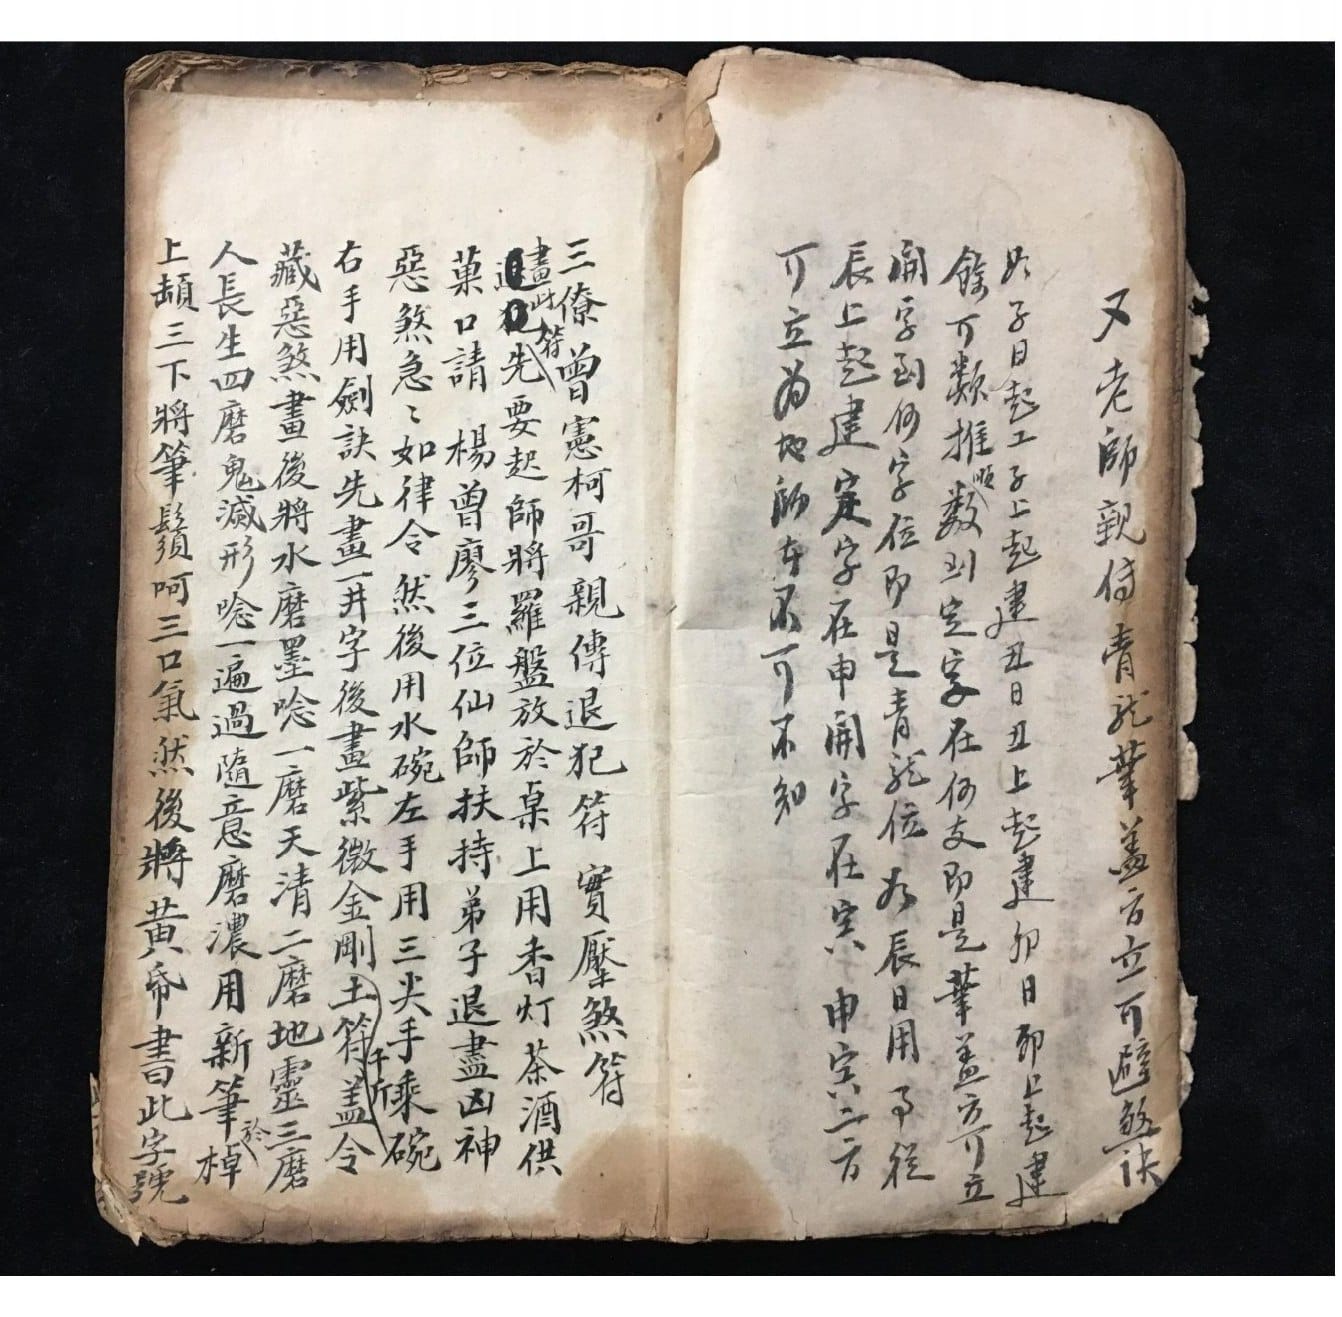 又老師親傳青龍華盖方立可避煞訣
如子日起工子上起建丑日丑上起建卯日卯上起建
餘可類推順数到定字在何支即是華盖方可立
開字到何字位即是青龍位如辰日用事從
辰上起建定字在申開字在寅申寅二方
可立為地師者不可不知
三僚曾憲柯哥親傳退犯符實壓煞符
畫此符先要起師將羅盤放於桌上用香灯茶酒供
菓口請楊曾廖三位仙師扶持弟子退盡凶神
惡煞急〻如律令然後用水碗左手用三尖手乘碗
右手用劍訣先畫一井字後畫紫微金剛土符盖令千斤
藏惡煞畫後將水磨墨唸一磨天清二磨地靈三磨
人長生四磨鬼減形唸一遍過隨意磨濃用新筆於棹
上頓三下將筆鬚呵三口氣然後將黃帋書此字號